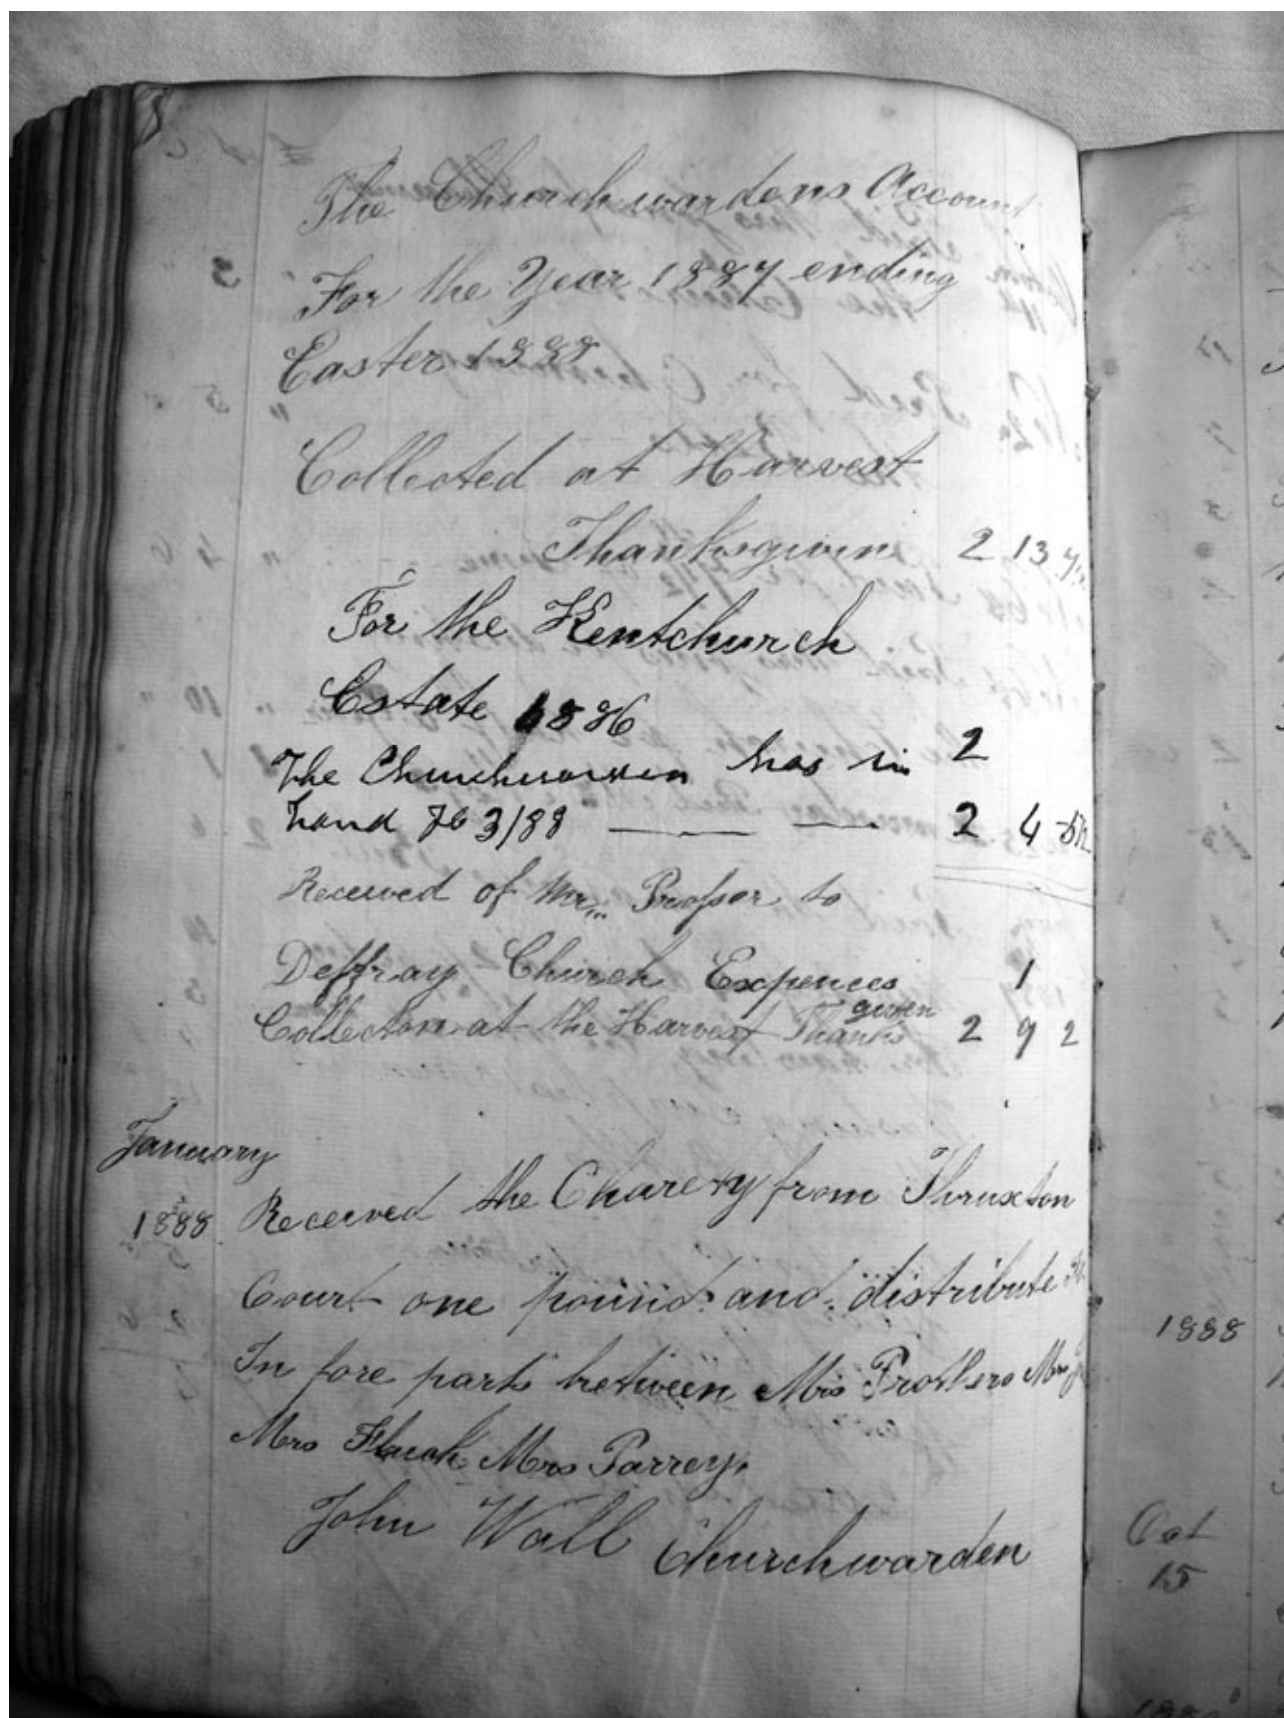 The Churchwardens Account
For the Year 1887 ending
Easter 1888
Collected at Harvest
Thanksgiven 2 13
For the Kentchurch
Estate 1886 2
The Churchwarden has in
hand 3/88 2 4
Received of Mr Profser to
Deffray Church Expences 1
given
Collecton at the Harvest Thanks 2 9 2
January
1888 Received the Charety from Thruxton
Court one pound and distribute
In fore parts between Mrs Prothero Mrs
Mrs Mrs Parrey
John Wall Churchwarden
1888
Oct
15